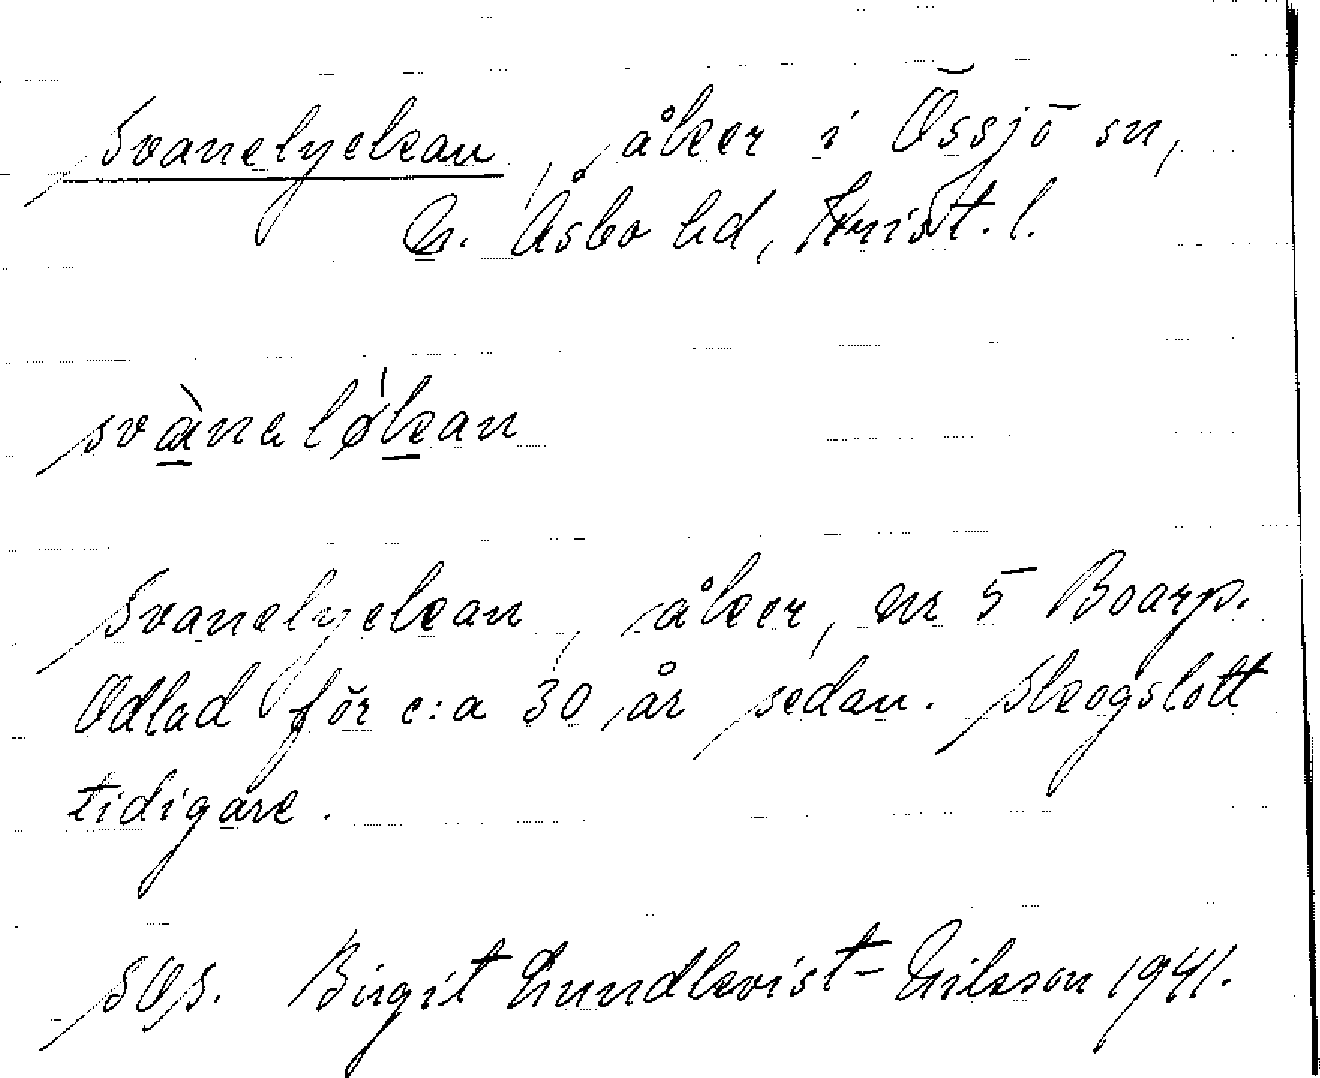 Svanelyckan, åker i Össjö sn,
N. Åsbo hd, Krist. l.
svànaløkan
Svanelyckan, åker, nr 5 Boarp.
Odlad för c:a 30 år sedan. Skogslott
tidigare.
SOS. Birgit Lundkvist-Nilsson 1941.